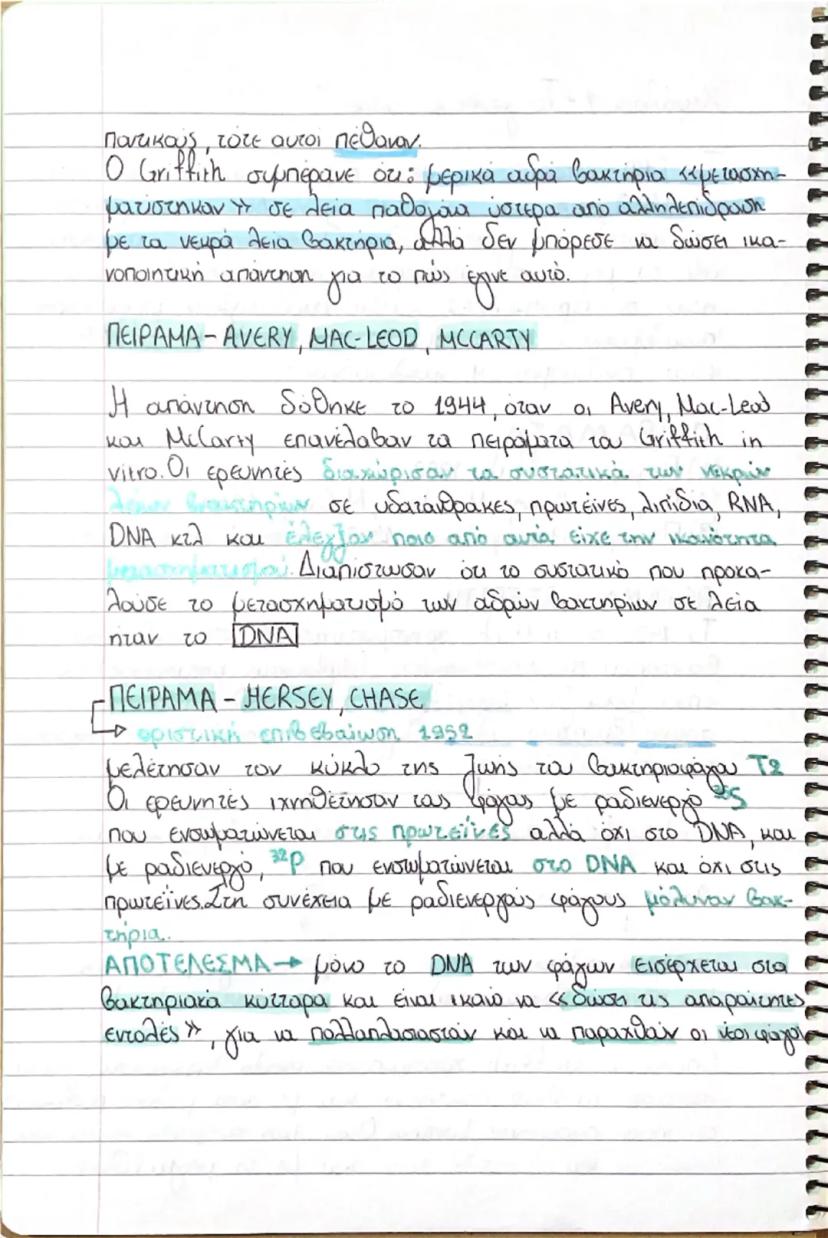 ποντικούς, τότε αυτοί πέθαναν.
Ο Griffith συμπέρανε ότι: μερικά αδρά βακτήρια «μετασχη-
ματίστηκαν» σε λεία παθογόνα ύστερα από αλληλεπίδραση
με τα νεκρά λεία βακτήρια, αλλά δεν μπόρεσε να δώσει ικα-
νοποιητική απάντηση για το πώς έγινε αυτό.
ΠΕΙΡΑΜΑ - AVERY, MAC-LEOD, MCCARTY
Η απάντηση δόθηκε το 1944, όταν οι Avery, Mac-Leod
και McCarty επανέλαβαν τα πειράματα του Griffith in
vitro. Οι ερευνητές διαχώρισαν τα συστατικά των νεκρών
λείων βακτηρίων σε υδατάνθρακες, πρωτεΐνες, λιπίδια, RNA,
DNA κτλ και έλεγξαν ποιο από αυτά είχε την ικανότητα
μετασχηματισμού. Διαπίστωσαν ότι το συστατικό που προκα-
λούσε το μετασχηματισμό των αδρών βακτηρίων σε λεία
ήταν το DNA
ΠΕΙΡΑΜΑ - HERSEY, CHASE
→ οριστική επιβεβαίωση 1952
μελέτησαν τον κύκλο της ζωής του βακτηριοφάγου T2
Οι ερευνητές ιχνηθέτησαν τους φάγους με ραδιενεργό ³⁵S
που ενσωματώνεται στις πρωτεΐνες αλλά όχι στο DNA, και
με ραδιενεργό, ³²P που ενσωματώνεται στο DNA και όχι στις
πρωτεΐνες. Στη συνέχεια με ραδιενεργούς φάγους μόλυναν βακ-
τήρια.
ΑΠΟΤΕΛΕΣΜΑ → μόνο το DNA των φάγων εισέρχεται στα
βακτηριακά κύτταρα και είναι ικανό να «δώσει τις απαραίτητες
εντολές», για να πολλαπλασιαστούν και να παραχθούν οι νέοι φάγοι